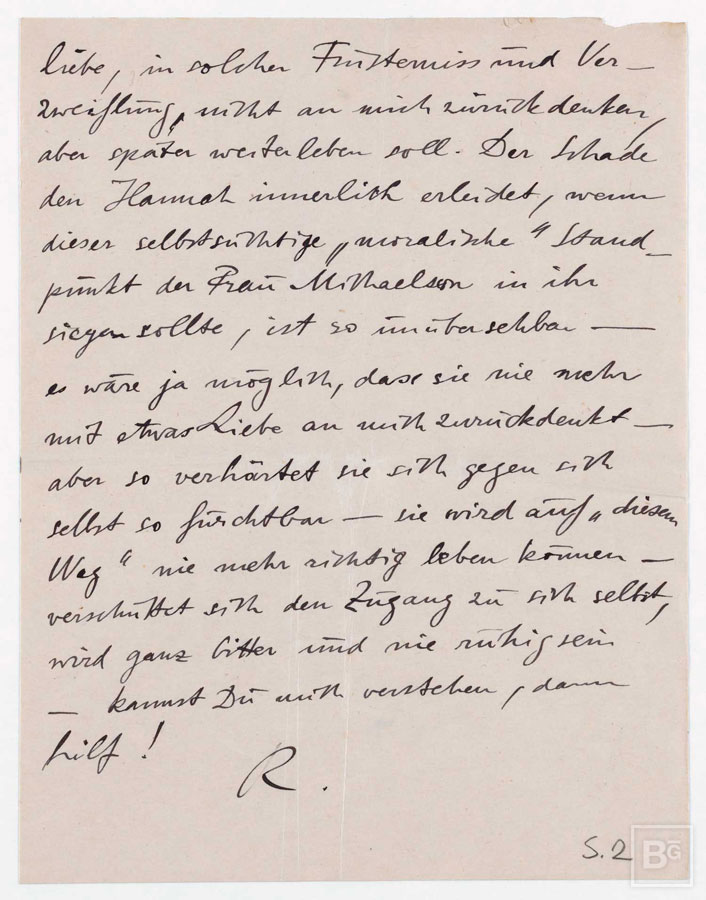 liebe, in solcher Finsterniss und Ver–
zweiflung, nicht an mich zurückdenken,
aber später weiterleben soll. Der Schade
den Hannah innerlich erleidet, wenn
dieser selbstsüchtige „moralische“ Stand–
punkt der Frau Michaelson in ihr
siegen sollte, ist so unübersehbar —
es wäre ja möglich, dass sie nie mehr
mit etwas Liebe an mich zurückdenkt —
aber so verhärtet sie sich gegen sich
selbst so furchtbar — sie wird auf „diesem
Weg“ nie mehr richtig leben können —
verschüttet sich den Zugang zu sich selbst,
wird ganz bitter und nie ruhig sein
— kannst Du mich verstehen, dann
hilf!
R.
S. 2
BG